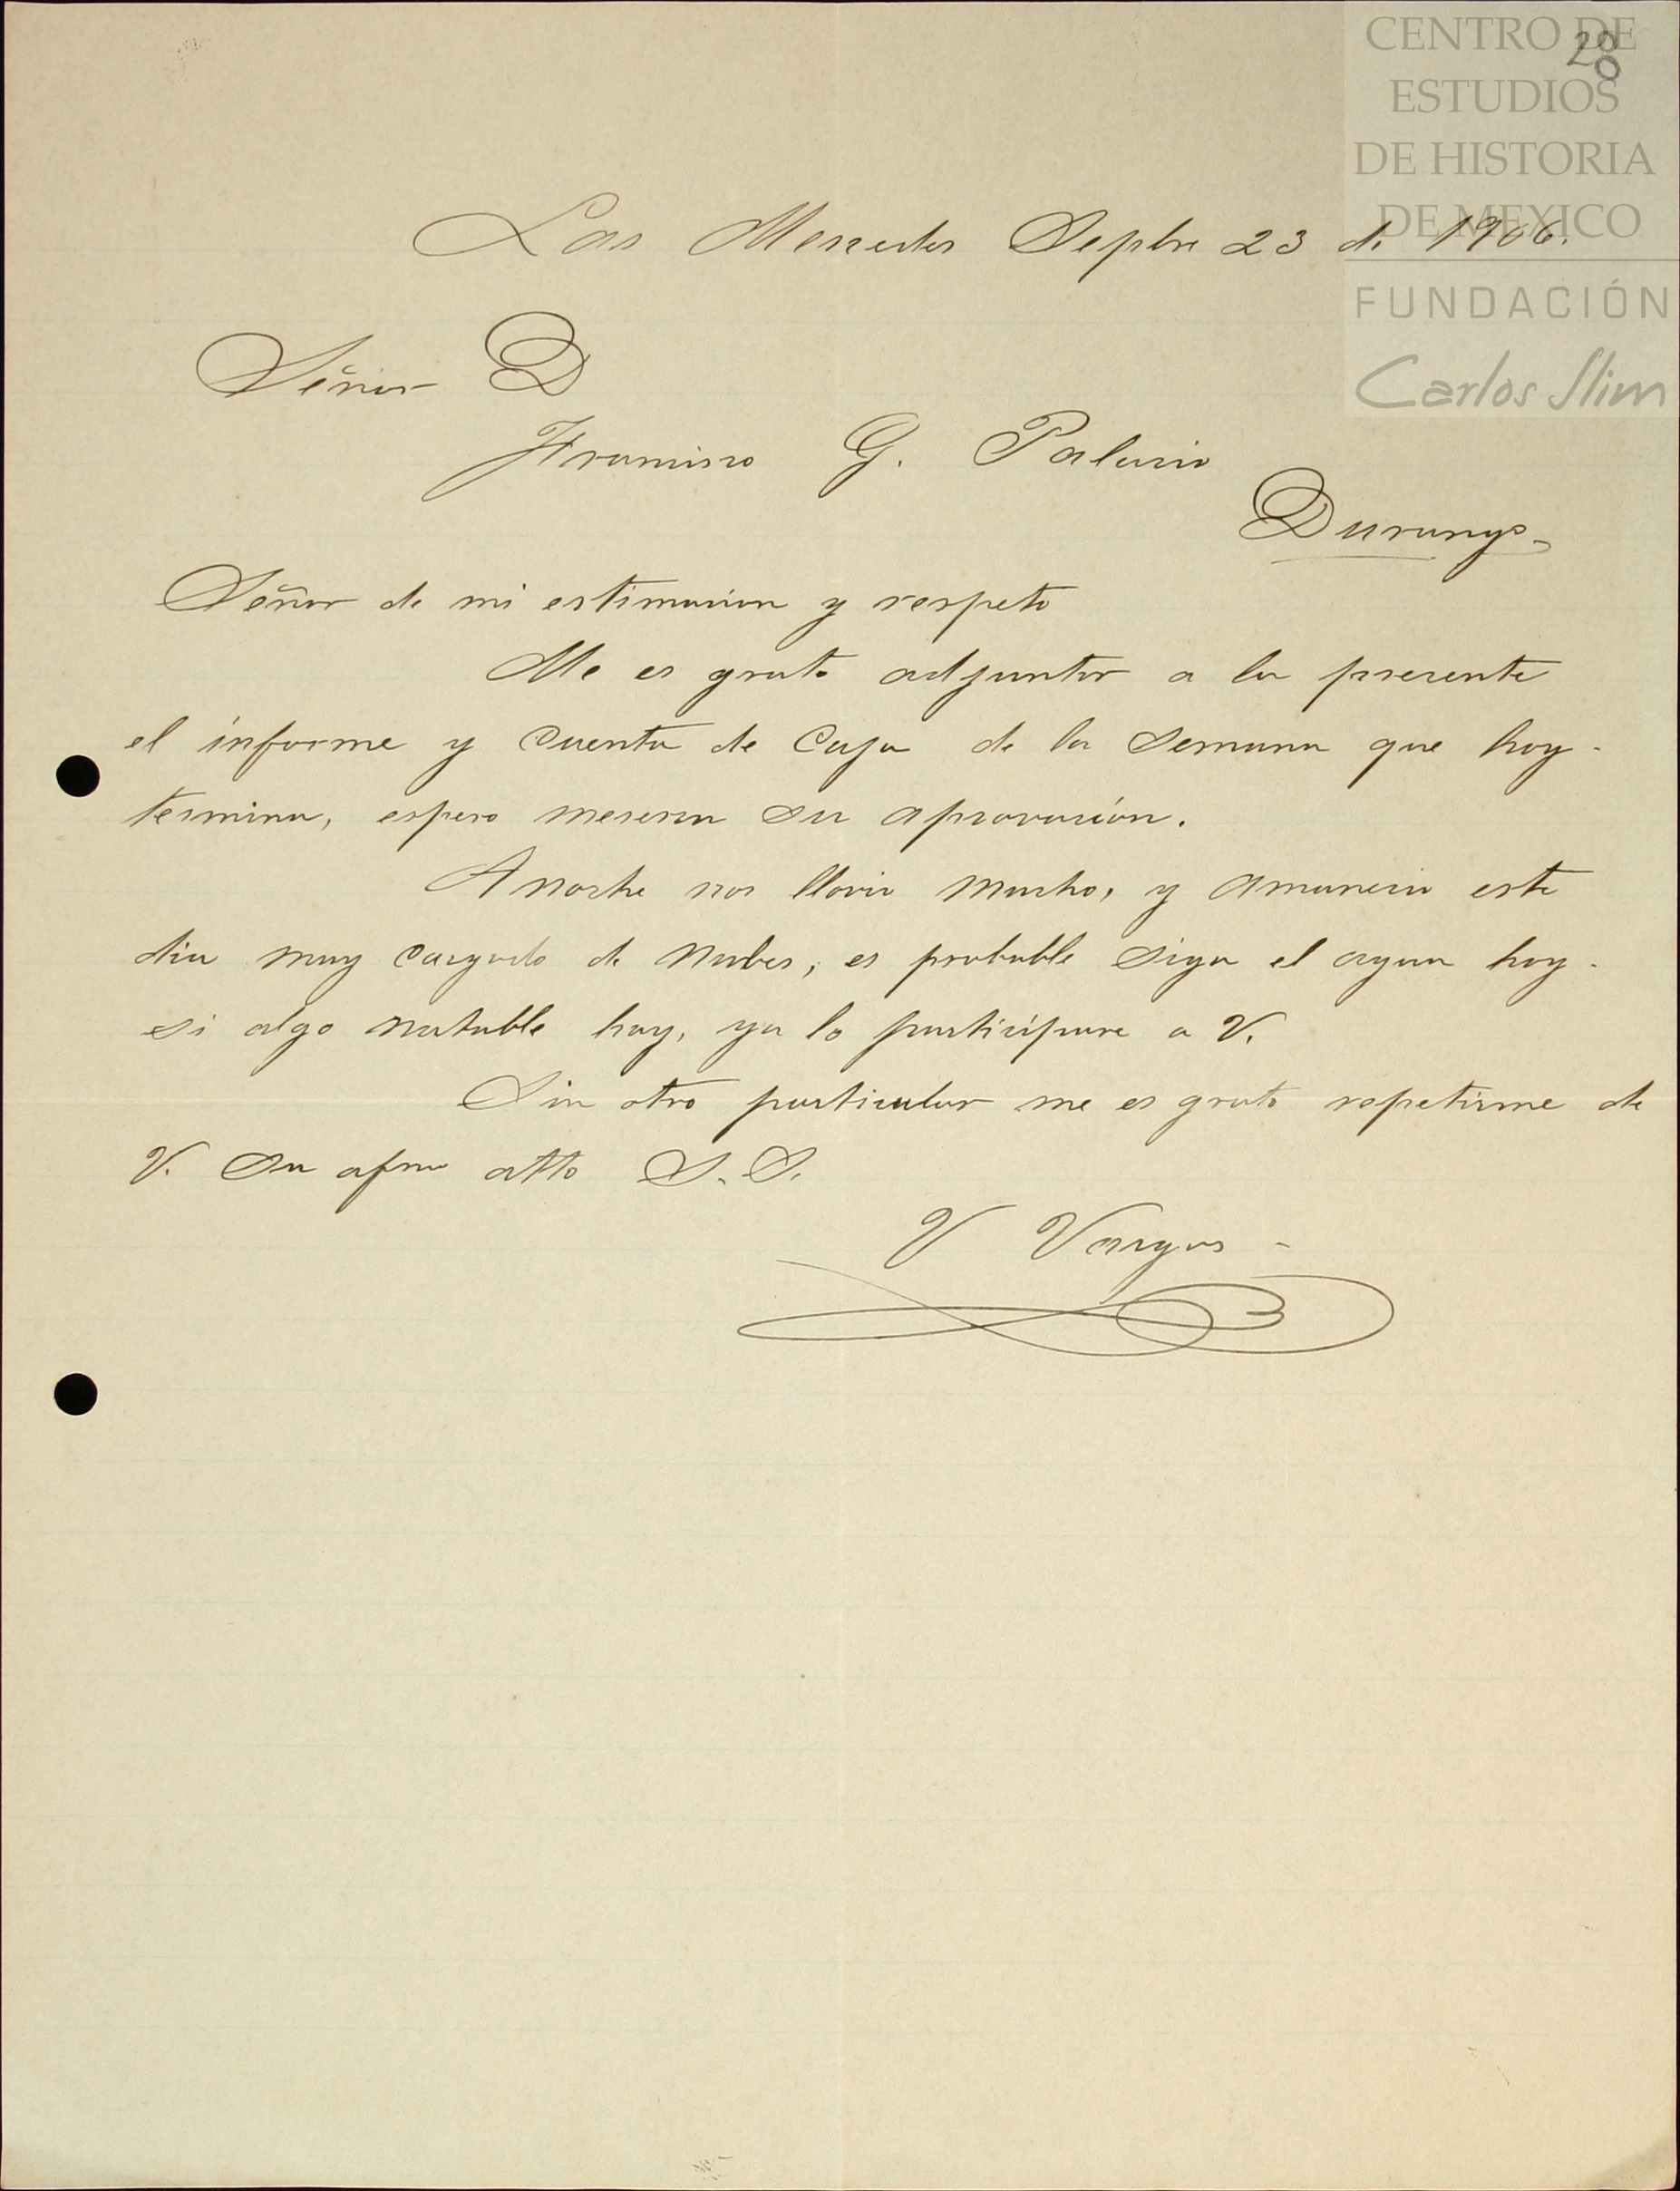 CENTRO DE
ESTUDIOS
DE HISTORIA
DE MEXICO
FUNDACIÓN
Carlos Slim
28
Las Mercedes Septbre 23 de 1906.
Señor D
Francisco G. Palacio
Durango.
Señor de mi estimacion y respeto
Me es grato adjuntar a la presente
el informe y cuenta de Caja de la Semana que hoy
termina, espero meresca su aprovación.
Anoche nos llovio mucho, y amanecio este
dia muy cargado de nubes, es probable siga el agua hoy
si algo notable hay, ya lo participare a V.
Sin otro particular me es grato repetirme de
V. su afmo atto S. S.
V Vargas